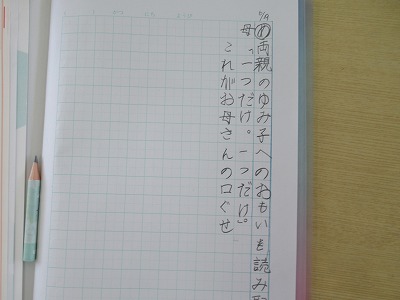 5/19
め 両親のゆみ子へのおもいを読み取
母「一つだけ。一つだけ。」
これがお母さんの口ぐせ